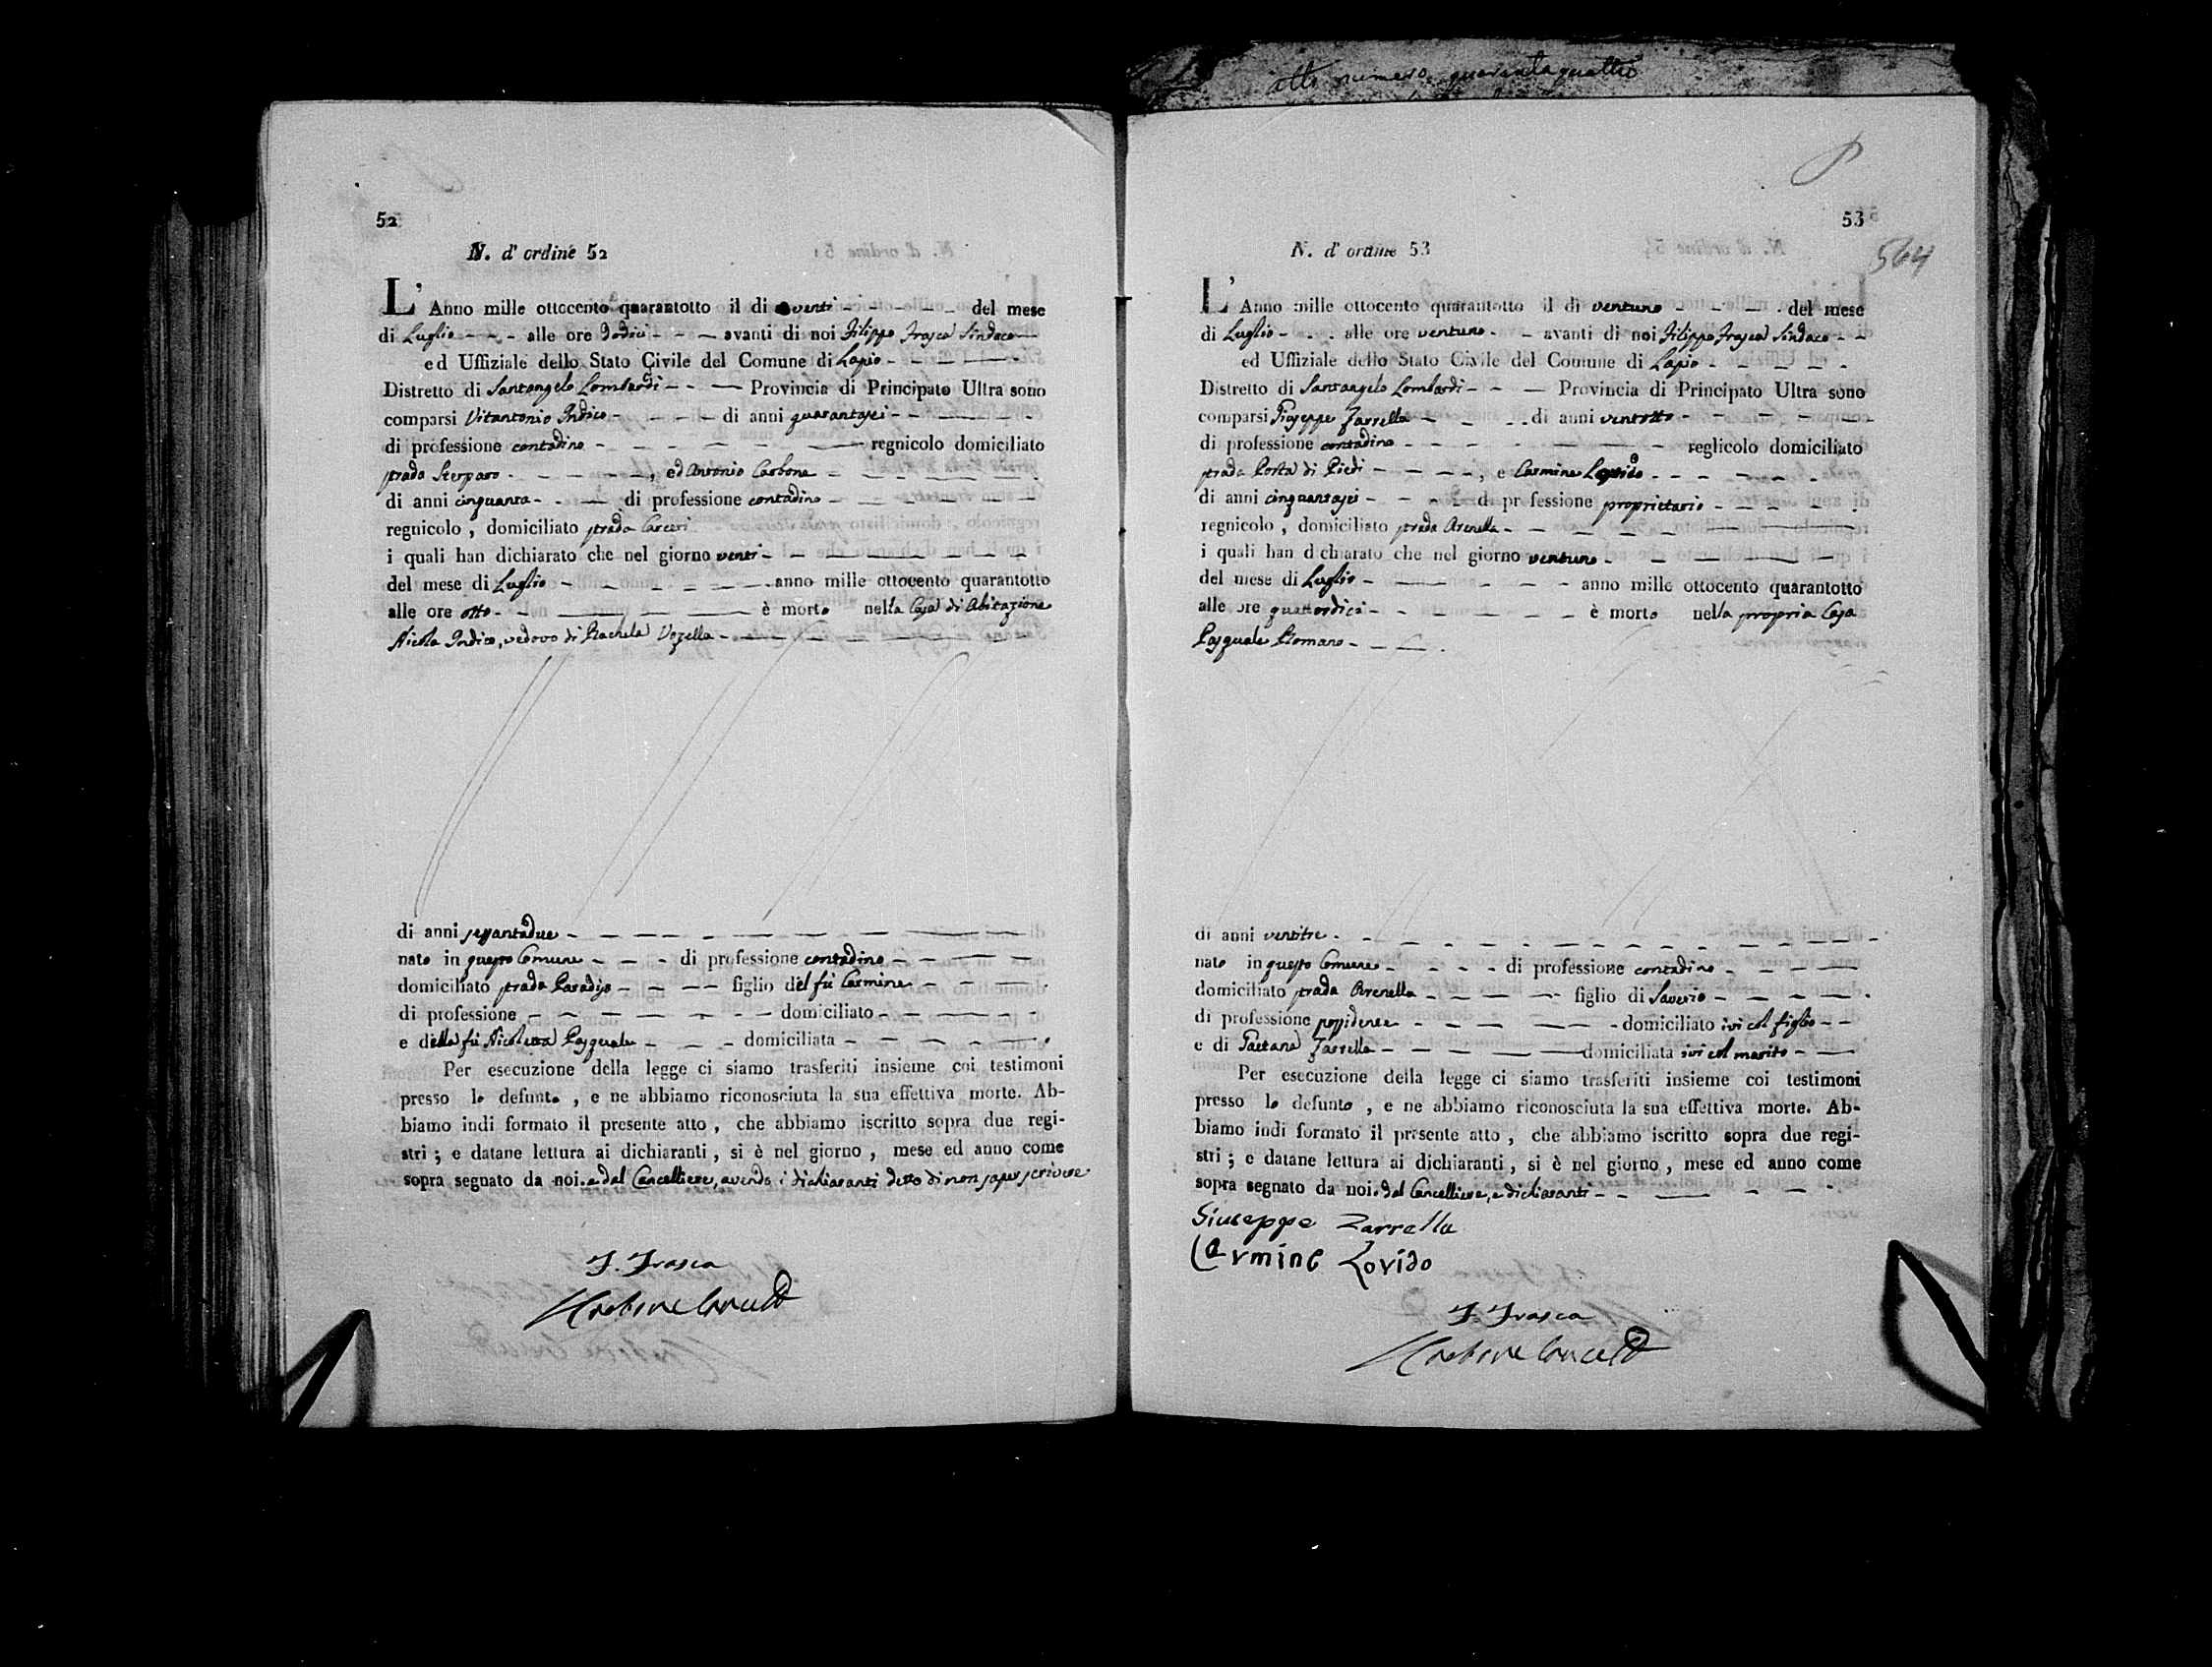 atto numero quarantaquattro
52
N. d' ordine 52
L' Anno mille ottocento quarantotto il di venti del mese
di Luglio alle ore dodici avanti di noi Filippo Frasca Sindaco
ed Uffiziale dello Stato Civile del Comune di Lapio
Distretto di Santangelo Lombardi Provincia di Principato Ultra sono
comparsi Vitantonio Indico di anni quarantasei
di professione contadino regnicolo domiciliato
strada Sterparo , ed Antonio Carbone
di anni cinquanta di professione contadino
regnicolo , domiciliato strada Carceri
i quali han dichiarato che nel giorno venti
del mese di Luglio anno mille ottocento quarantotto
alle ore otto è morto nella Casa di Abitazione
Nicola Indico, vedovo di Rachela Vozella
di anni sessantadue
nato in questo Comune di professione contadino
domiciliato strada Paradiso figlio del fù Carmine
di professione domiciliato
e della fù Nicoletta Pasquale domiciliata
Per esecuzione della legge ci siamo trasferiti insieme coi testimoni
presso lo defunto , e ne abbiamo riconosciuta la sua effettiva morte. Ab-
biamo indi formato il presente atto , che abbiamo iscritto sopra due regi-
stri ; e datane lettura ai dichiaranti , si è nel giorno , mese ed anno come
sopra segnato da noi. e dal Cancelliere, avendo i dichiaranti detto di non saper scrivere
F. Frasca
53
564
N. d' ordine 53
L' Anno mille ottocento quarantotto il di ventuno del mese
di Luglio alle ore ventuno avanti di noi Filippo Frasca Sindaco
ed Uffiziale dello Stato Civile del Comune di Lapio
Distretto di Santangelo Lombardi Provincia di Principato Ultra sono
comparsi Giuseppe Zarrella di anni ventotto
di professione contadino reglicolo domiciliato
strada Porta di Piedi , e Carmine Lovido
di anni cinquantasei di pr fessione proprietario
regnicolo , domiciliato strada Arenella
i quali han d chiarato che nel giorno ventuno
del mese di Luglio anno mille ottocento quarantotto
alle ore quattordici è morto nella propria Casa
Pasquale Romano
di anni ventitre
nato in questo Comune di professione contadino
domiciliato strada Arenella figlio di Saverio
di professione possidente domiciliato ivi col figlio
e di Gaetana Zarrella domiciliata ivi col marito
Per esecuzione della legge ci siamo trasferiti insieme coi testimoni
presso lo defunto , e ne abbiamo riconosciuta la sua effettiva morte. Ab-
biamo indi formato il presente atto , che abbiamo iscritto sopra due regi-
stri ; e datane lettura ai dichiaranti , si è nel giorno , mese ed anno come
sopra segnato da noi. dal Cancelliere, e dichiaranti
Giuseppe Zarrella
Carmine Lovido
F. Frasca